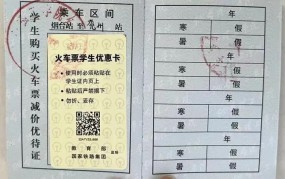 学生购买火车票减价优待证
乘车区间
烟台站
州 站
火车票学生优惠卡
使用时必须粘贴在
学生证内页上
粘贴后严禁撕下
勿折、重存
教育部
国家铁路集团
年
寒 假
暑
年
寒 假
暑
年
寒 假
暑
年
寒 假
暑